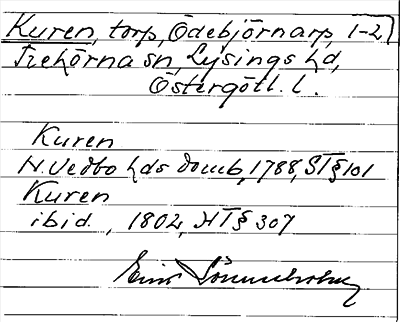 Kuren, torp, Ödebjörnarp, 1-2,
Trehörna sn, Lysings hd,
Östergötl. l.
Kuren
N. Vedbo hds domb, 1788, ST § 101
Kuren
ibid., 1802, HT § 307